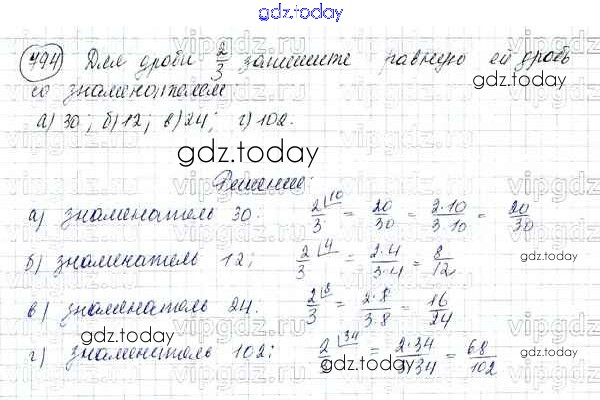 gdz.today
794) Для дроби 2/3 запишите равную ей дробь
со знаменателем
а) 30; б) 12; в) 24; г) 102.
gdz.today
Решение:
а) знаменатель 30: 2/3 ⌊10 = 20/30 = 2·10/3·10 = 20/30
б) знаменатель 12; 2/3 ⌊4 = 2·4/3·4 = 8/12
gdz.today
в) знаменатель 24. 2/3 ⌊8 = 2·8/3·8 = 16/24
г) знаменатель 102; 2/3 ⌊34 = 2·34/3·34 = 68/102
gdz.today
gdz.today